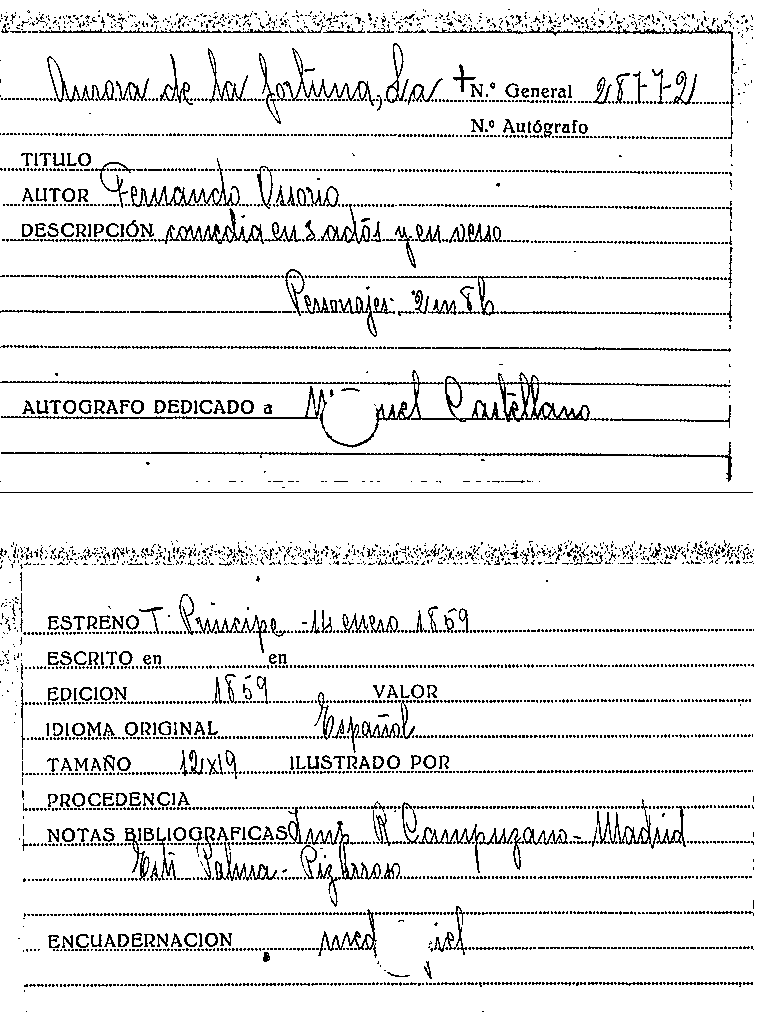 Aurora de la fortuna, La + N.º General 28772
N.º Autógrafo
TITULO
AUTOR Fernando Ossorio
DESCRIPCIÓN comedia en 3 actos y en verso
Personajes: 2m 8h
AUTOGRAFO DEDICADO a Miguel Castellano
ESTRENO T. Principe - 14 enero 1859
ESCRITO en en
EDICION 1859 VALOR
IDIOMA ORIGINAL Español
TAMAÑO 12x19 ILUSTRADO POR
PROCEDENCIA
NOTAS BIBLIOGRAFICAS Imp R Campuzano - Madrid
Palma -
ENCUADERNACION med piel